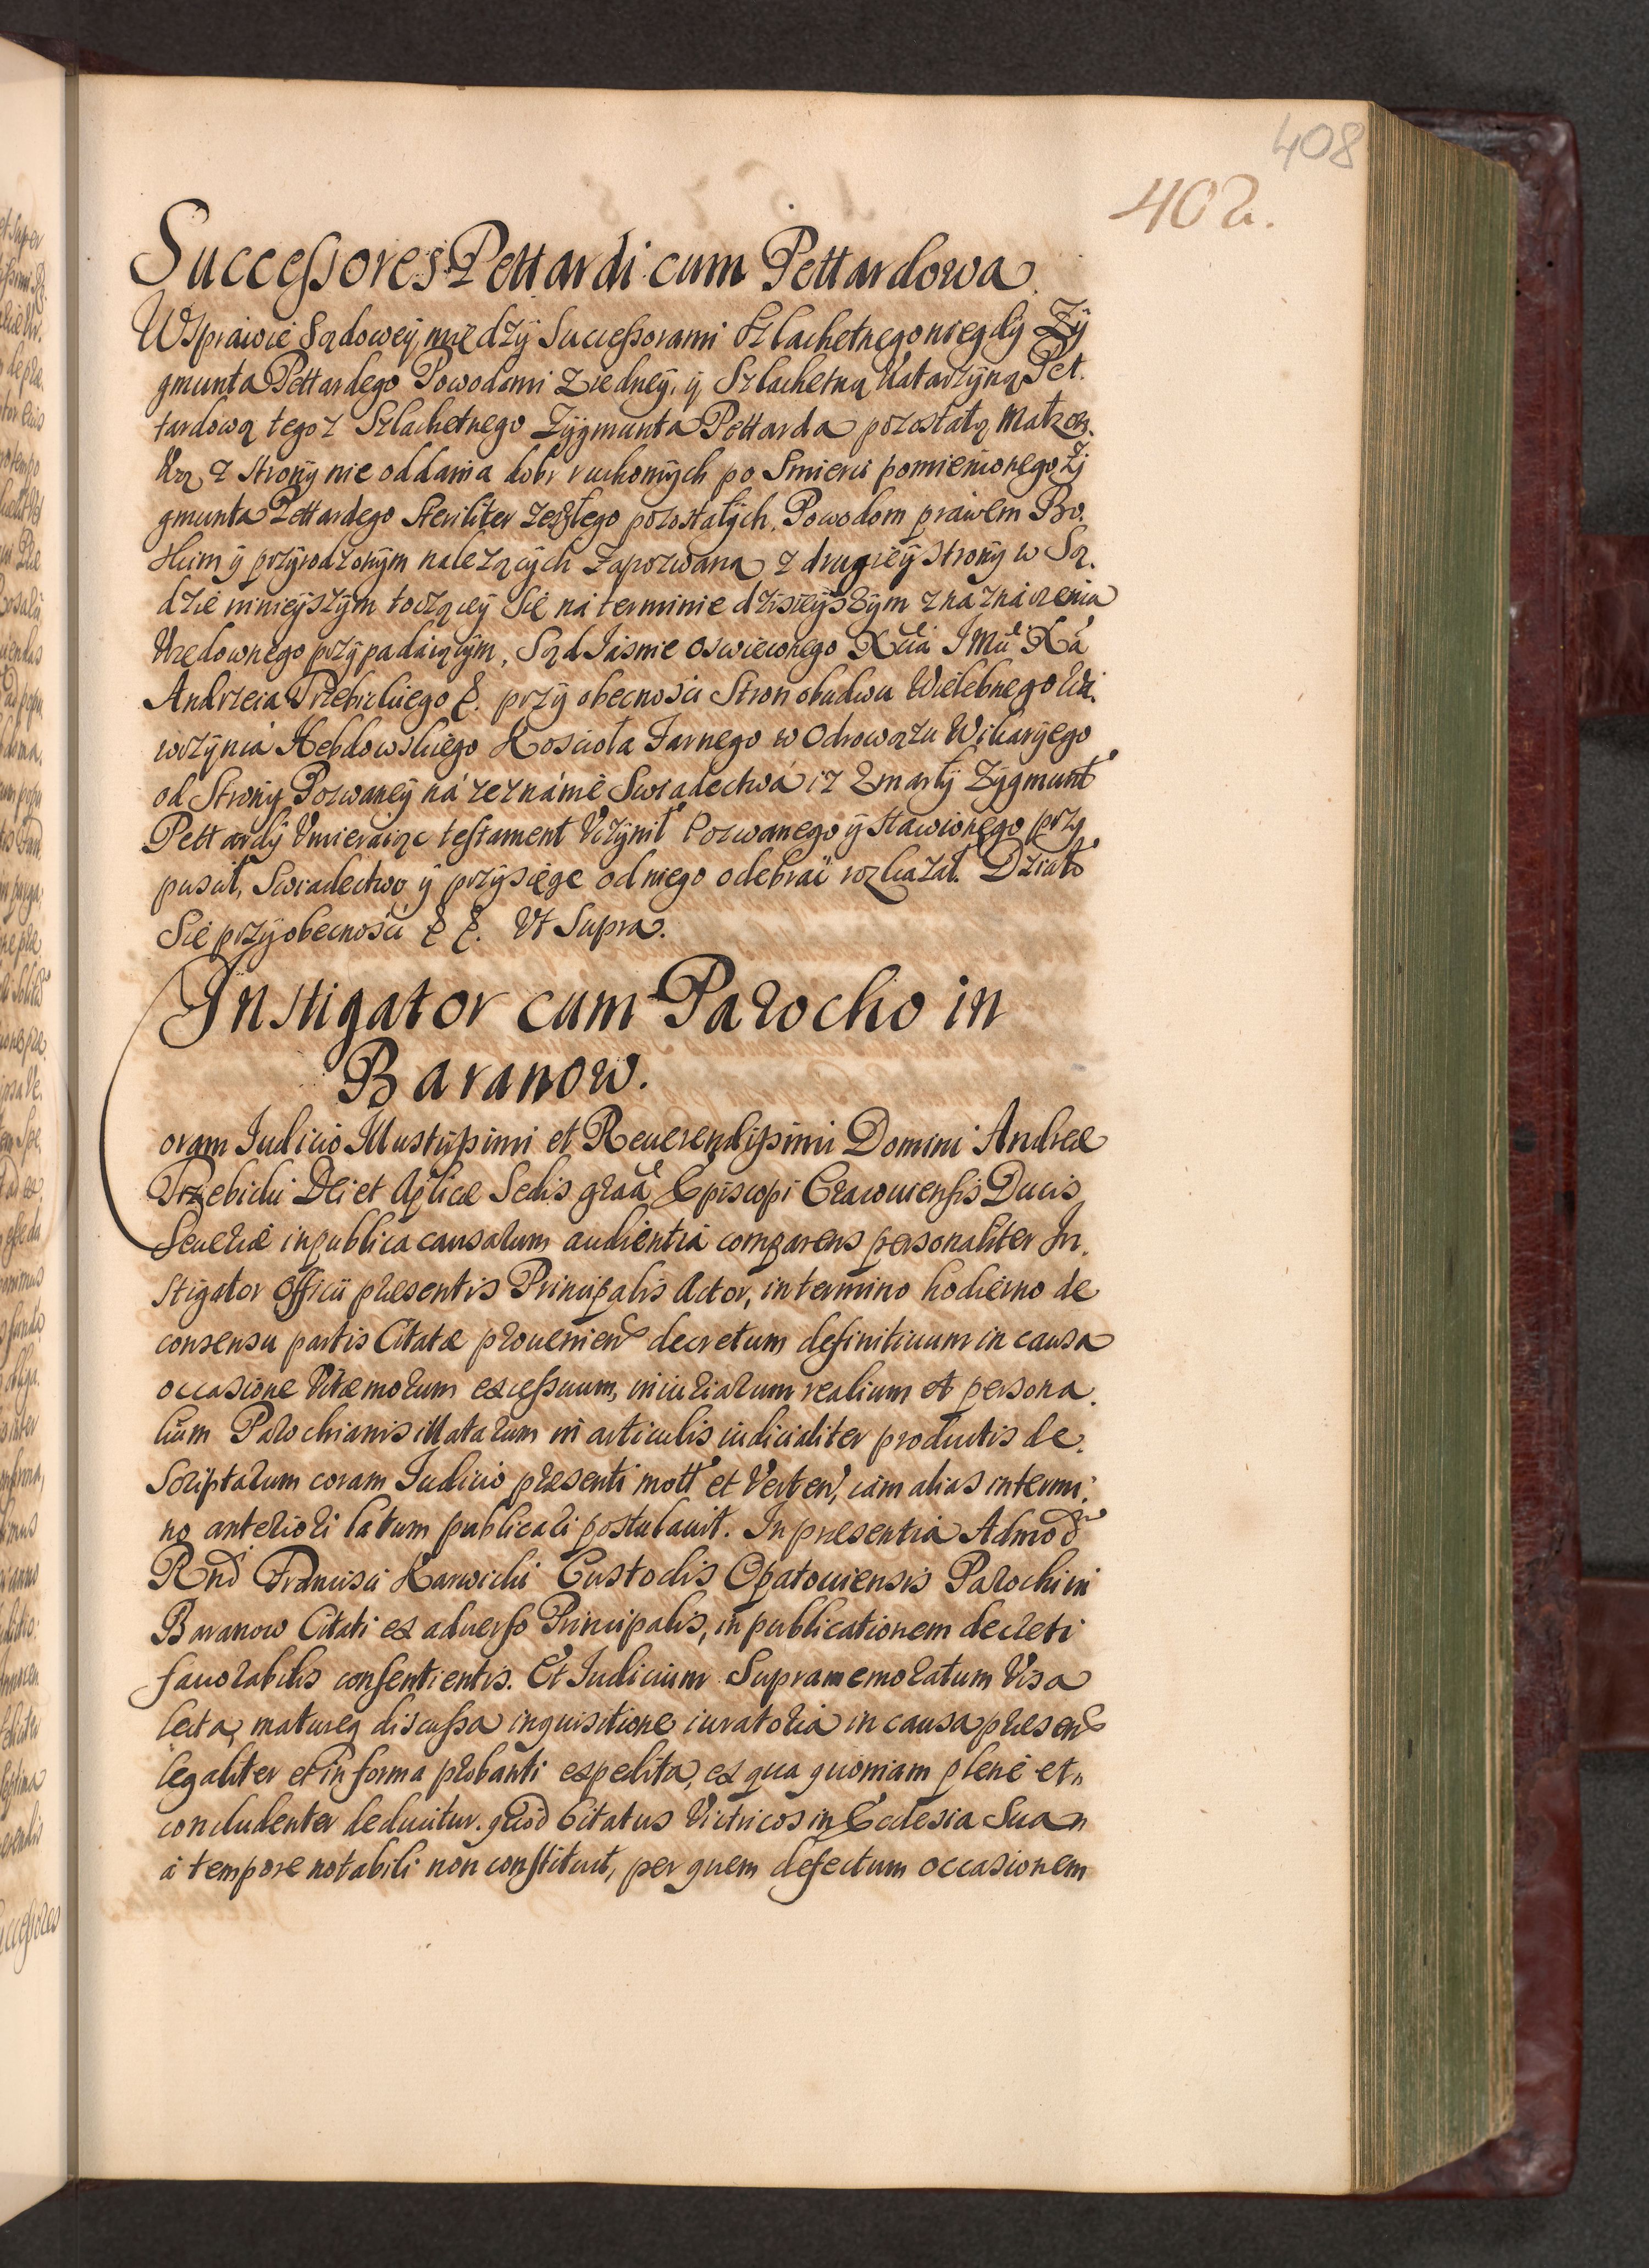 408
402.
Successores Pettardi cum Pettardowa
W Sprawie Sądoweÿ, między Successorami Szlachetnego niegdy Zÿ
gmunta Pettardego Powodami z iedneÿ, ÿ Szlachetną Katarzÿną Pet.
tardową tegoz Szlachetnego Zÿgmunta Pettarda pozostałą Małzon.
ką z Stronÿ nie oddania dobr ruchomÿch po Smierci pomienionego Zÿ
gmunta Pettardego Steriliter zeszłego pozostałÿch, Powodom prawem Bo.
skim ÿ przÿrodzonÿm nalezącÿch Zapozwaną z drugieÿ stronÿ w Są.
dzie ninieÿszÿm toczącej Się ná terminie dzisieÿszÿm z náznáczenia
Urzędownego przÿpadaiącÿm, Sąd Iasnie Oswieconego Xcia IMci Xa
Andrzeia Trzebickiego &. przÿ obecnosci Stron obudwu Wielebnego Wa.
wrzÿnca Hebdowskiego Koscioła Farnego w Odrowązu Wikarÿego
od Stronÿ Pozwaneÿ ná zeznánie Swiadectwá iz Zmarłÿ Zÿgmunt
Pettardÿ Umieraiąc testament Uczÿnił Pozwanego ÿ stawionego przÿ
puscił, Swiadectwo ÿ przÿsięgę od niego odebrać rozkazał. Działo
Się przÿ obecnosci & &. Ut Supra.
Instigator cum Parocho in
Baranow.
Coram Iudicio Illustrissimi et Reuerendissimi Domini Andreæ
Trzebicki Dei et Aplicæ Sedis graã Episcopi Cracouiensis Ducis
Seueriæ in publica causarum audientia comparens personaliter In.
stigator Officii præsentis Principalis Actor, in termino hodierno de
consensu partis Citatæ prouenien decretum definitiuum in causa
occasione Vitæ morum excessuum, iniuriarum realium et persona.
lium Parochianis illatarum in articulis iudicialiter productis de.
scriptarum coram Iudicio præsenti mott et Verten, iam alias in termi.
no anteriori latum publicari postulauit. In præsentia Admod
Rnd Francisci Karwicki Custodis Opatouiensis Parochi in
Baranow Citati ex aduerso Principalis, in publicationem decreti
fauorabilis consentientis. Et Iudicium Supramemoratum Visa
lecta, matureq discussa inquisitione iuratoria in causa præsen
legaliter et in forma probanti expedita, ex qua quoniam plene et
concludenter deducitur. quod Citatus Vitricos in Ecclesia Sua
à tempore notabili non constituit, per quem defectum occasionem